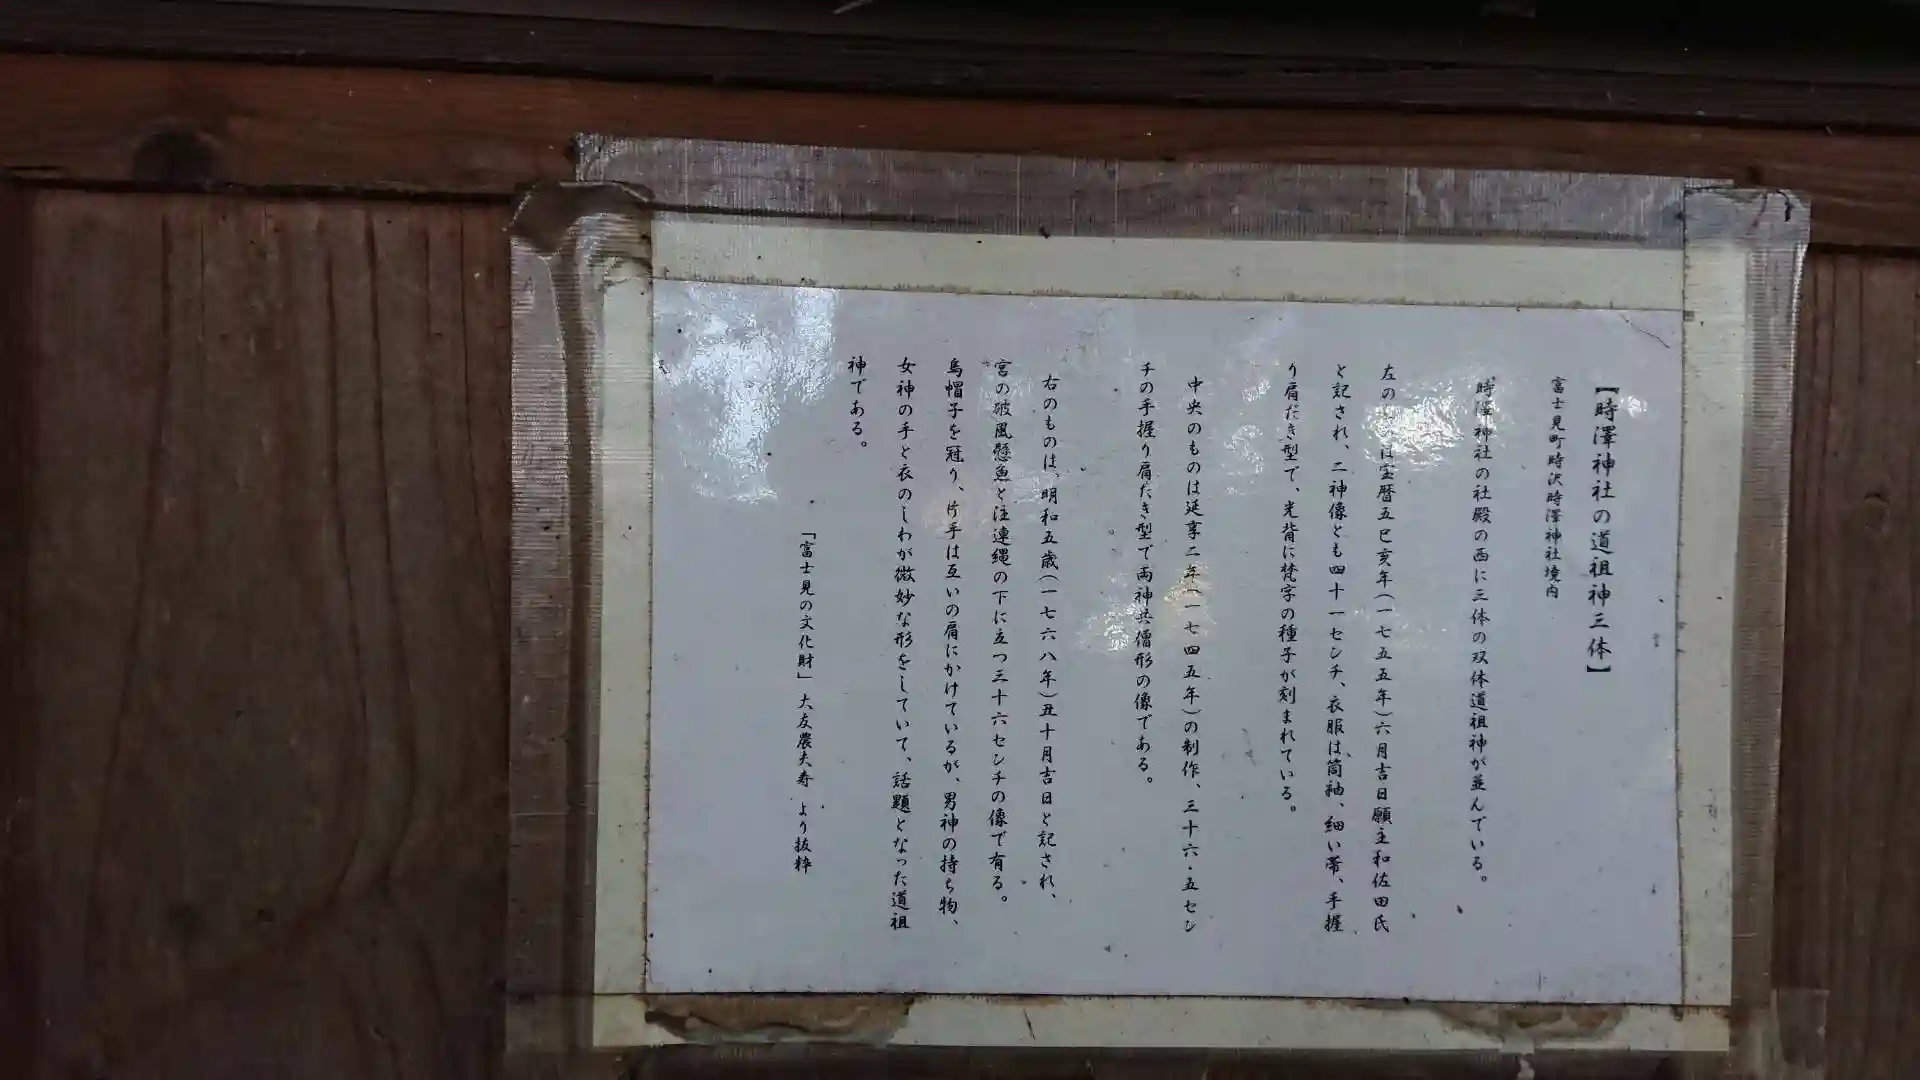 【時澤神社の道祖神三体】
富士見町時沢時澤神社境内
時澤神社の社殿の西に三体の双体道祖神が並んでいる。
左の は宝暦五巳亥年(一七五五年)六月吉日願主和佐田氏
と記され、二神像とも四十一センチ、衣服は筒袖、細い帯、手握
り肩だき型で、光背に梵字の種子が刻まれている。
中央のものは延享二年(一七四五年)の制作、三十六・五セン
チの手握り肩だき型で両神共僧形の像である。
右のものは、明和五歳(一七六八年)丑十月吉日と記され、
宮の破風懸魚と注連縄の下に立つ三十六センチの像で有る。
烏帽子を冠り、片手は互いの肩にかけているが、男神の持ち物、
女神の手と衣のしわが微妙な形をしていて、話題となった道祖
神である。
「富士見の文化財」大友農夫寿 より抜粋